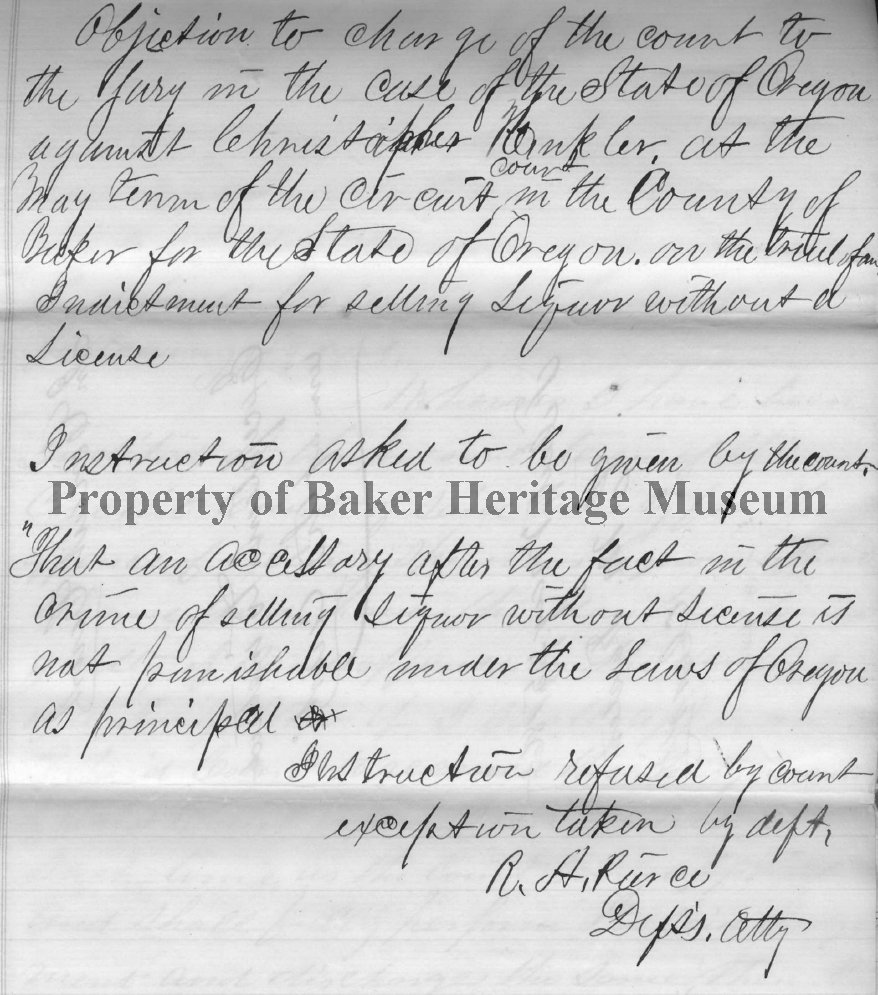 Objection to charge of the court to
the Jury in the case of the State of Oregon
against Christopher Winkler, at the
May term of the Circuit court in the County of
Baker for the State of Oregon. on the trial of an
Indictment for selling Liquor without a
License
Instruction asked to be given by the court.
Property of Baker Heritage Museum
"That an accessory after the fact in the
crime of selling Liquor without License is
not punishable under the Laws of Oregon
as principal
Instruction refused by court
exception taken by deft,
R. A. Pierce
Defts. Atty